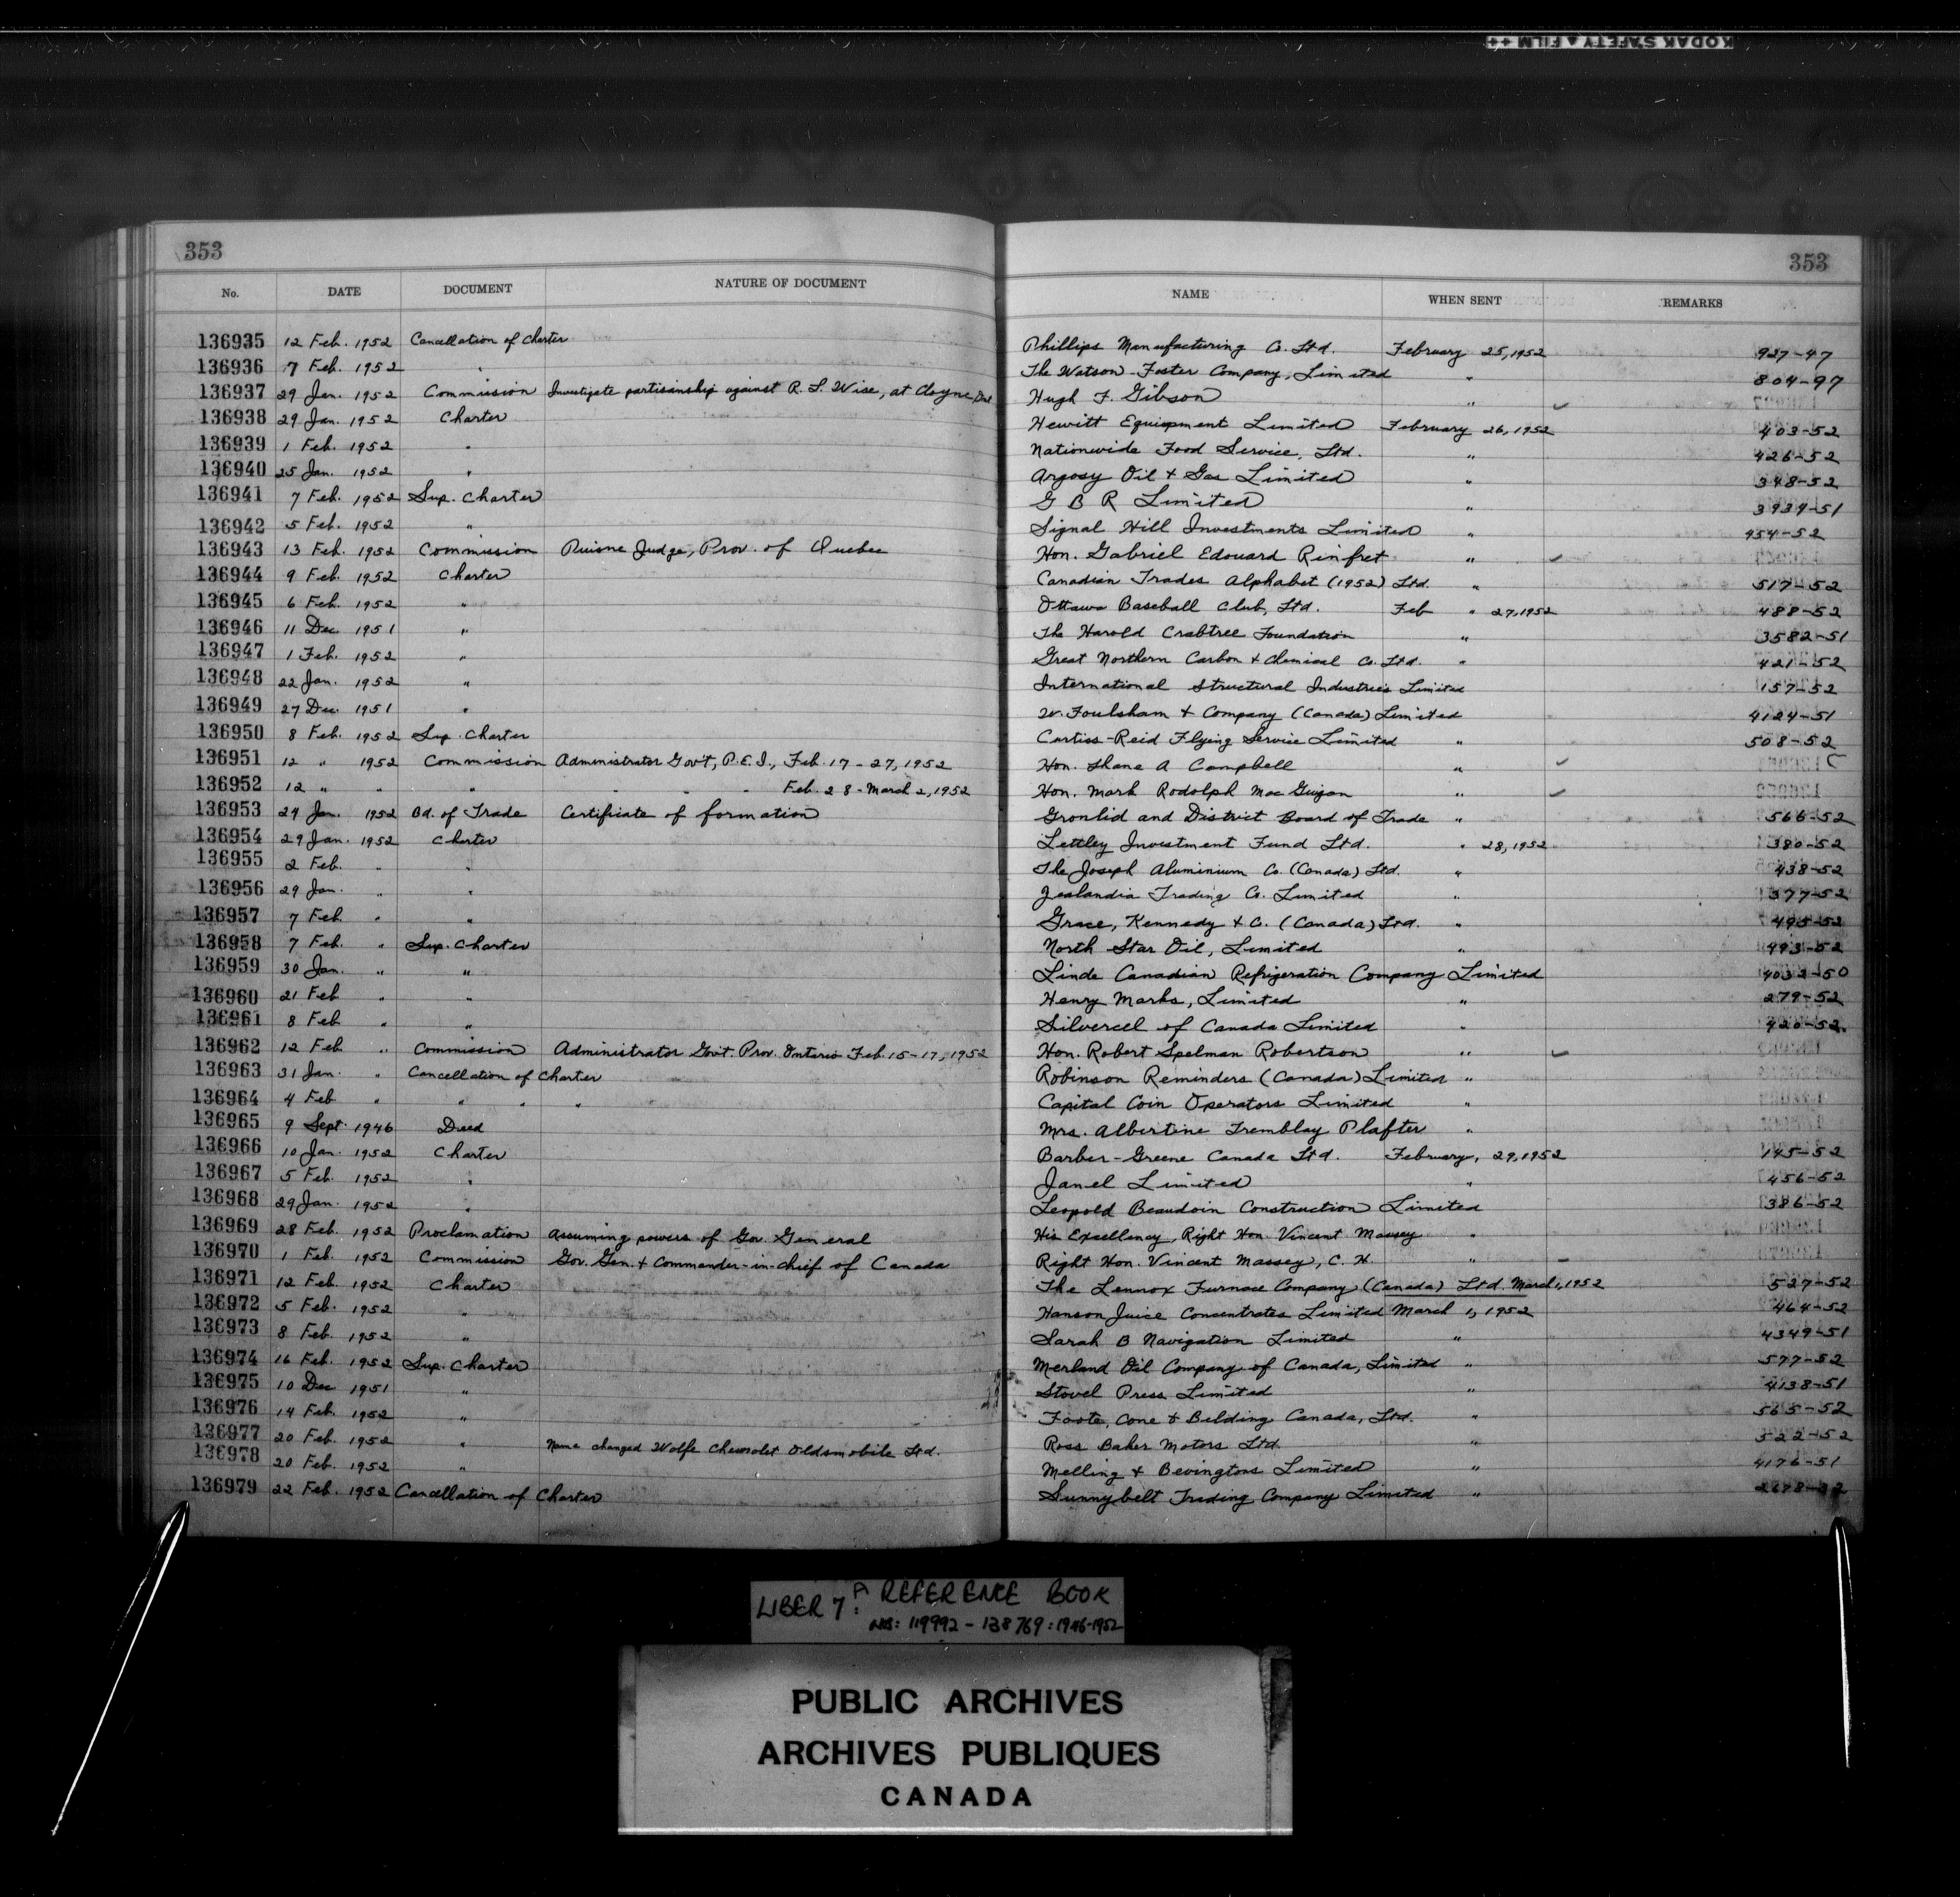 KODAK SAFETY FILM ++
353 353
No. DATE DOCUMENT NATURE OF DOCUMENT NAME WHEN SENT REMARKS
136935 12 Feb. 1952 Cancellation of Charter Phillips Manufacturing Co. Ltd. February 25, 1952 927-47
136936 7 Feb. 1952 " The Watson-Foster Company, Limited " 804-97
136937 29 Jan. 1952 Commission Investigate partisanship against R. S. Wise, at Cloyne, Ont Hugh F. Gibson " ✓
136938 29 Jan. 1952 Charter Hewitt Equipment Limited February 26, 1952 403-52
136939 1 Feb. 1952 " Nationwide Food Service, Ltd. " 426-52
136940 25 Jan. 1952 " Argosy Oil & Gas Limited " 348-52
136941 7 Feb. 1952 Sup. Charter G B R Limited " 3934-51
136942 5 Feb. 1952 " Signal Hill Investments Limited " 454-52
136943 13 Feb. 1952 Commission Puisne Judge, Prov. of Quebec Hon. Gabriel Edouard Rinfret " ✓
136944 9 Feb. 1952 Charter Canadian Trades Alphabet (1952) Ltd. " 517-52
136945 6 Feb. 1952 " Ottawa Baseball Club, Ltd. Feb " 27, 1952 488-52
136946 11 Dec. 1951 " The Harold Crabtree Foundation " 3582-51
136947 1 Feb. 1952 " Great Northern Carbon & Chemical Co. Ltd. " 421-52
136948 22 Jan. 1952 " International Structural Industries Limited 157-52
136949 27 Dec. 1951 " W. Foulsham & Company (Canada) Limited 4124-51
136950 8 Feb. 1952 Sup. Charter Curtiss-Reid Flying Service Limited " 508-52
136951 12 " 1952 Commission Administrator Gov't, P.E.I., Feb. 17-27, 1952 Hon. Thane A Campbell " ✓
136952 12 " " " " " " Feb. 28-March 2, 1952 Hon. Mark Rodolph MacGuigan " ✓
136953 24 Jan. 1952 Bd. of Trade Certificate of formation Gronlid and District Board of Trade " 566-52
136954 29 Jan. 1952 Charter Lettley Investment Fund Ltd. " 28, 1952 380-52
136955 2 Feb. " " The Joseph Aluminium Co. (Canada) Ltd. " 438-52
136956 29 Jan. " " Zealandia Trading Co. Limited " 377-52
136957 7 Feb. " " Grace, Kennedy & Co. (Canada) Ltd. " 495-52
136958 7 Feb. " Sup. Charter North Star Oil, Limited " 493-52
136959 30 Jan. " " Linde Canadian Refrigeration Company Limited 4032-50
136960 21 Feb " " Henry Marks, Limited " 279-52
136961 8 Feb " " Silvercel of Canada Limited " 420-52
136962 12 Feb " Commission Administrator Govt. Prov. Ontario Feb. 15-17, 1952 Hon. Robert Spelman Robertson " ✓
136963 31 Jan. " Cancellation of Charter Robinson Reminders (Canada) Limited "
136964 4 Feb " " " " Capital Coin Operators Limited "
136965 9 Sept. 1946 Deed Mrs. Albertine Tremblay Plafter "
136966 10 Jan. 1952 Charter Barber-Greene Canada Ltd. February, 29, 1952 145-52
136967 5 Feb. 1952 " Janel Limited " 456-52
136968 29 Jan. 1952 " Leopold Beaudoin Construction Limited 386-52
136969 28 Feb. 1952 Proclamation Assuming powers of Gov. General His Excellency, Right Hon. Vincent Massey "
136970 1 Feb. 1952 Commission Gov. Gen. & Commander-in-chief of Canada Right Hon. Vincent Massey, C. H. "
136971 12 Feb. 1952 Charter The Lennox Furnace Company (Canada) Ltd. March 1, 1952 527-52
136972 5 Feb. 1952 " Hanson Juice Concentrates Limited March 1, 1952 464-52
136973 8 Feb. 1952 " Sarah B Navigation Limited " 4349-51
136974 16 Feb. 1952 Sup. Charter Merland Oil Company of Canada, Limited " 577-52
136975 10 Dec 1951 " Stovel Press Limited " 4138-51
136976 14 Feb. 1952 " Foote, Cone & Belding Canada, Ltd. " 565-52
136977 20 Feb. 1952 " Name changed Wolfe Chevrolet Oldsmobile Ltd. Ross Baker Motors Ltd " 522-52
136978 20 Feb. 1952 " Melling & Bevingtons Limited " 4176-51
136979 22 Feb. 1952 Cancellation of Charter Sunnybelt Trading Company Limited "
LIBER 7A: REFERENCE BOOK
NOS: 119992 - 138769: 1946-1952
PUBLIC ARCHIVES
ARCHIVES PUBLIQUES
CANADA